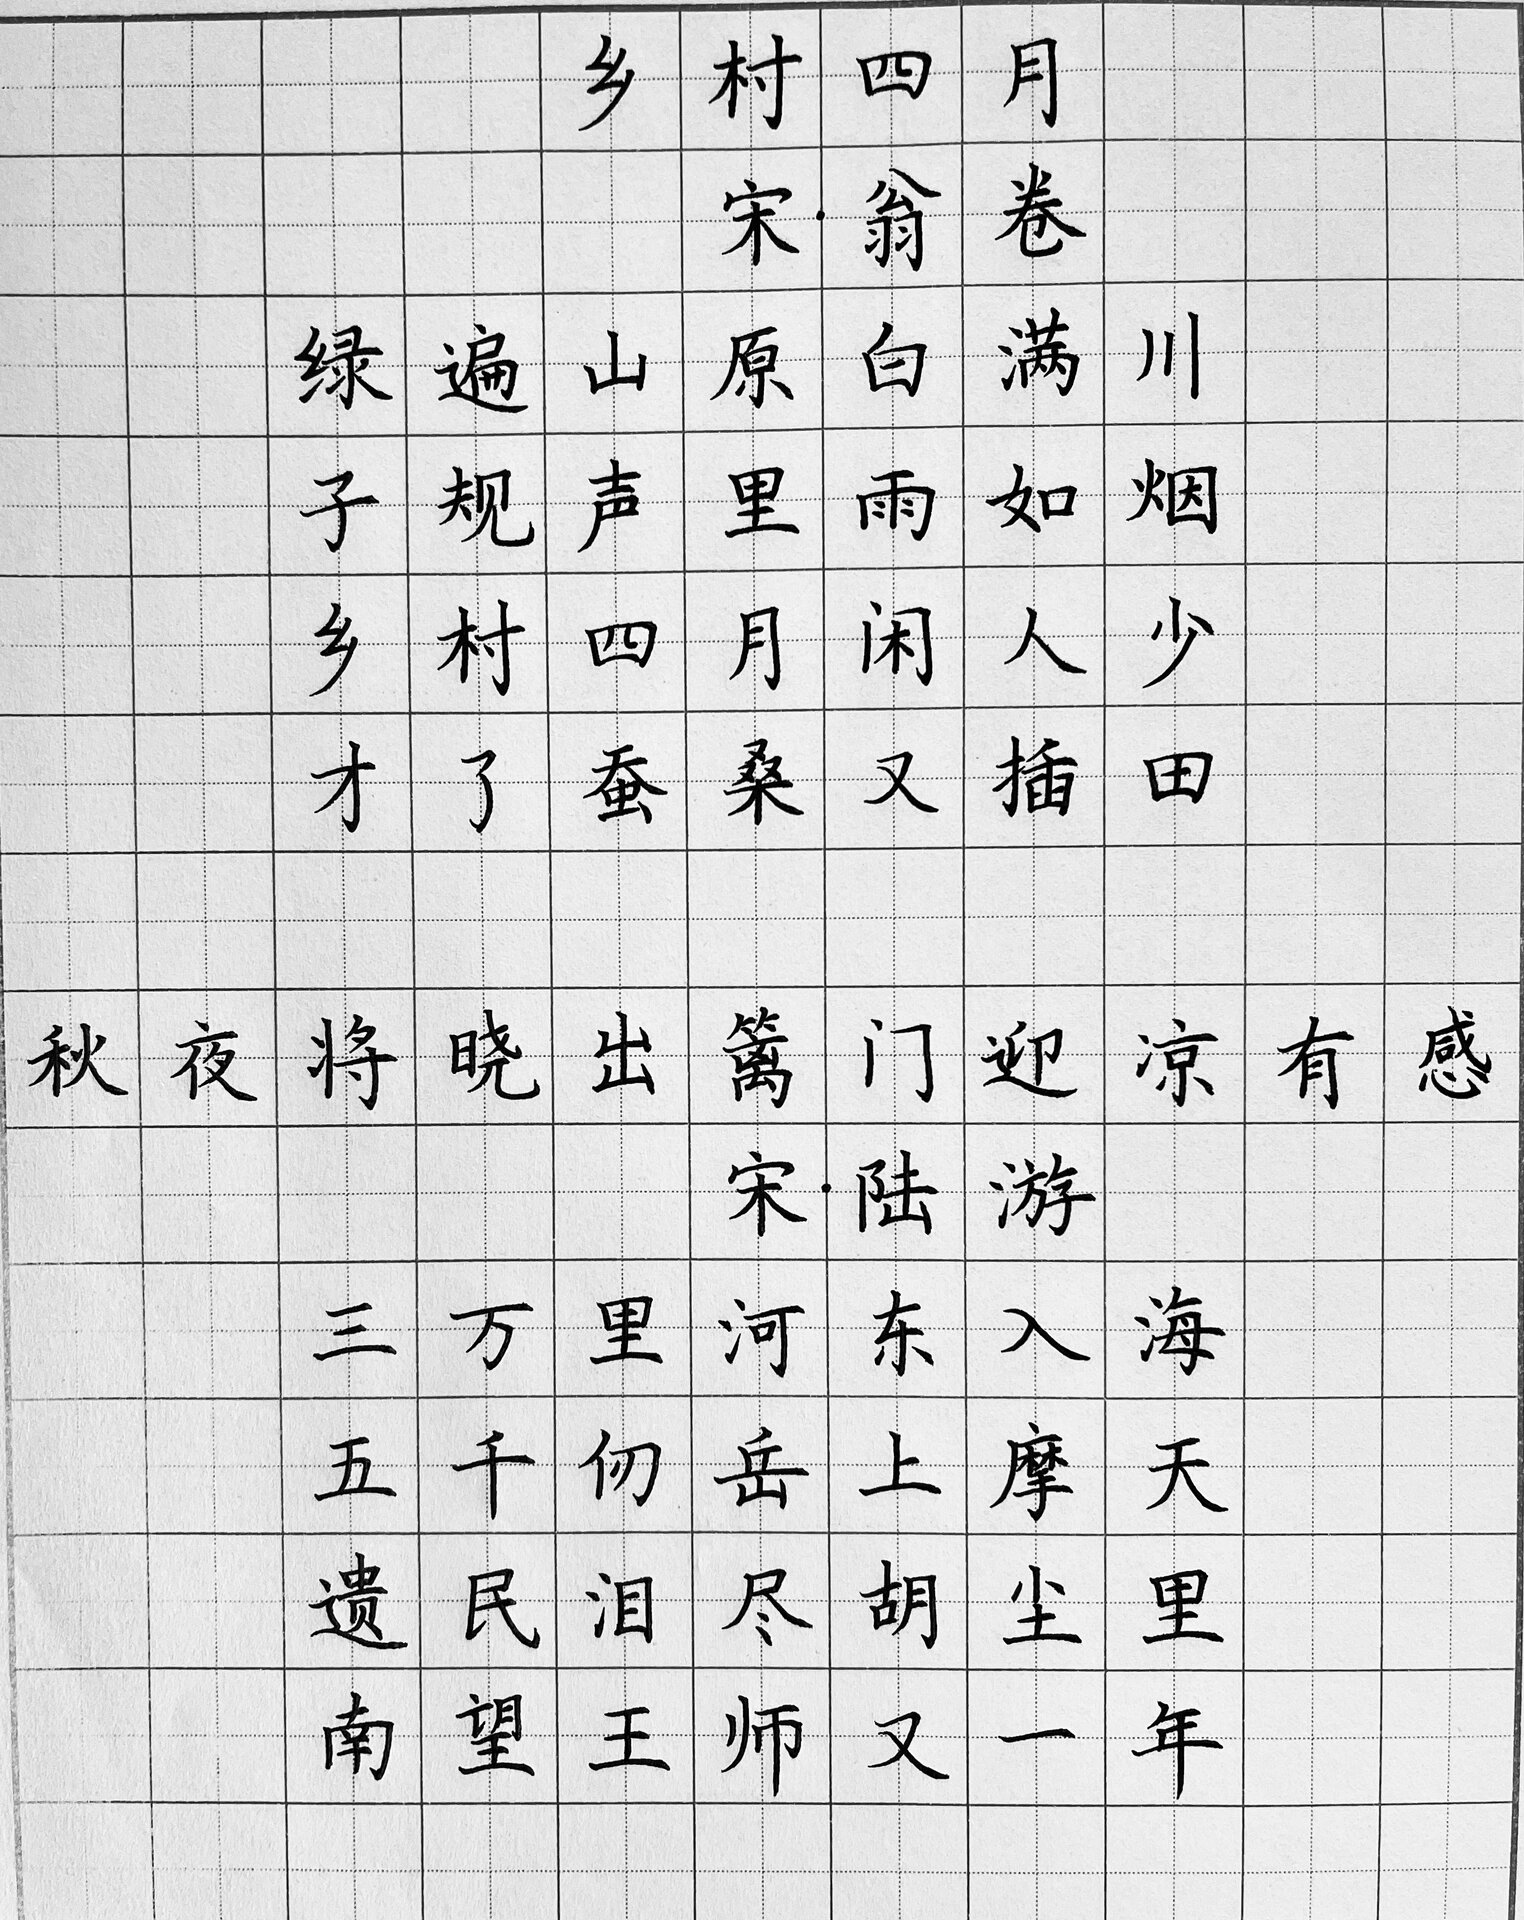 乡村四月
宋·翁卷
绿遍山原白满川
子规声里雨如烟
乡村四月闲人少
才了蚕桑又插田
秋夜将晓出篱门迎凉有感
宋·陆游
三万里河东入海
五千仞岳上摩天
遗民泪尽胡尘里
南望王师又一年